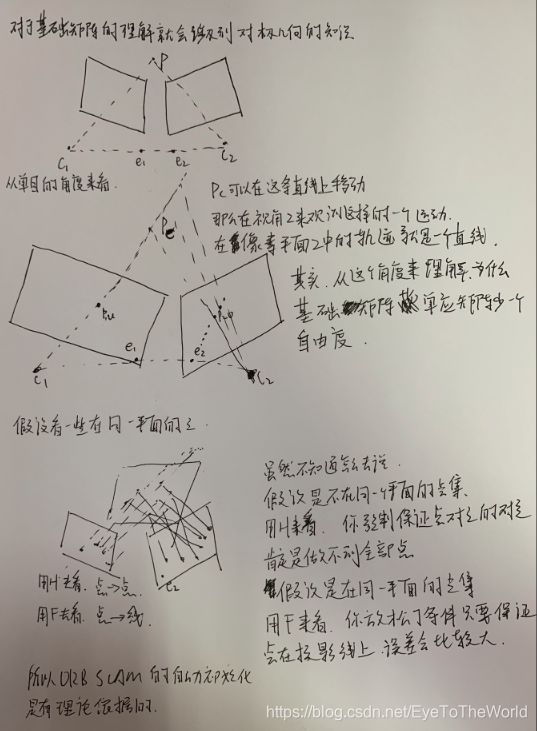 对于基础矩阵的理解就会涉及到对极几何的知识
P
C1 e1 e2 C2
从单目的角度来看.
Pc可以在这条直线上移动
那么在视角2来观测这样的一个运动.
在像素平面2中的轨迹就是一个直线.
Pc
其实.从这个角度来理解.为什么
基础矩阵 单应矩阵少一个
自由度.
e1 e2
C1 C2
假设有一些在同一平面的点
虽然不知道怎么去说.
假设是不在同一个平面的点集
用H来看. 你强制保证点对点的对应
肯定是做不到全部点
e2
用H去看.点→点.
用F去看.点→线.
假设是在同一平面的点集
用F来看.你放松了条件只要保证
点在投影线上.误差会比较大.
所以ORB SLAM的自动初始化
是有理论依据的.
https://blog.csdn.net/EyeToTheWorld